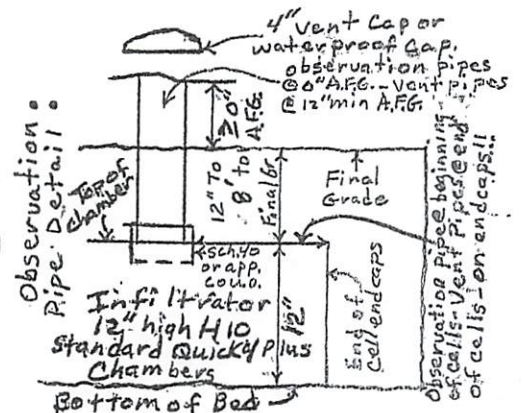 4" Vent Cap or
waterproof Cap.
observation pipes
@ 0" A.F.G. - Vent pipes
@ 12" min A.F.G.
Observation
Pipe Detail:
≥0"
A.F.G.
12" To
8' to
Final Gr
Final
Grade
Top of
chamber
sch.40
or app.
Infiltrator
12" high H10
Standard Quick4 Plus
Chambers
12"
End of
Cell endcaps
Bottom of Bed
Observation Pipe@ beginning
of cells-Vent pipes@ end
of cells-on endcaps!!